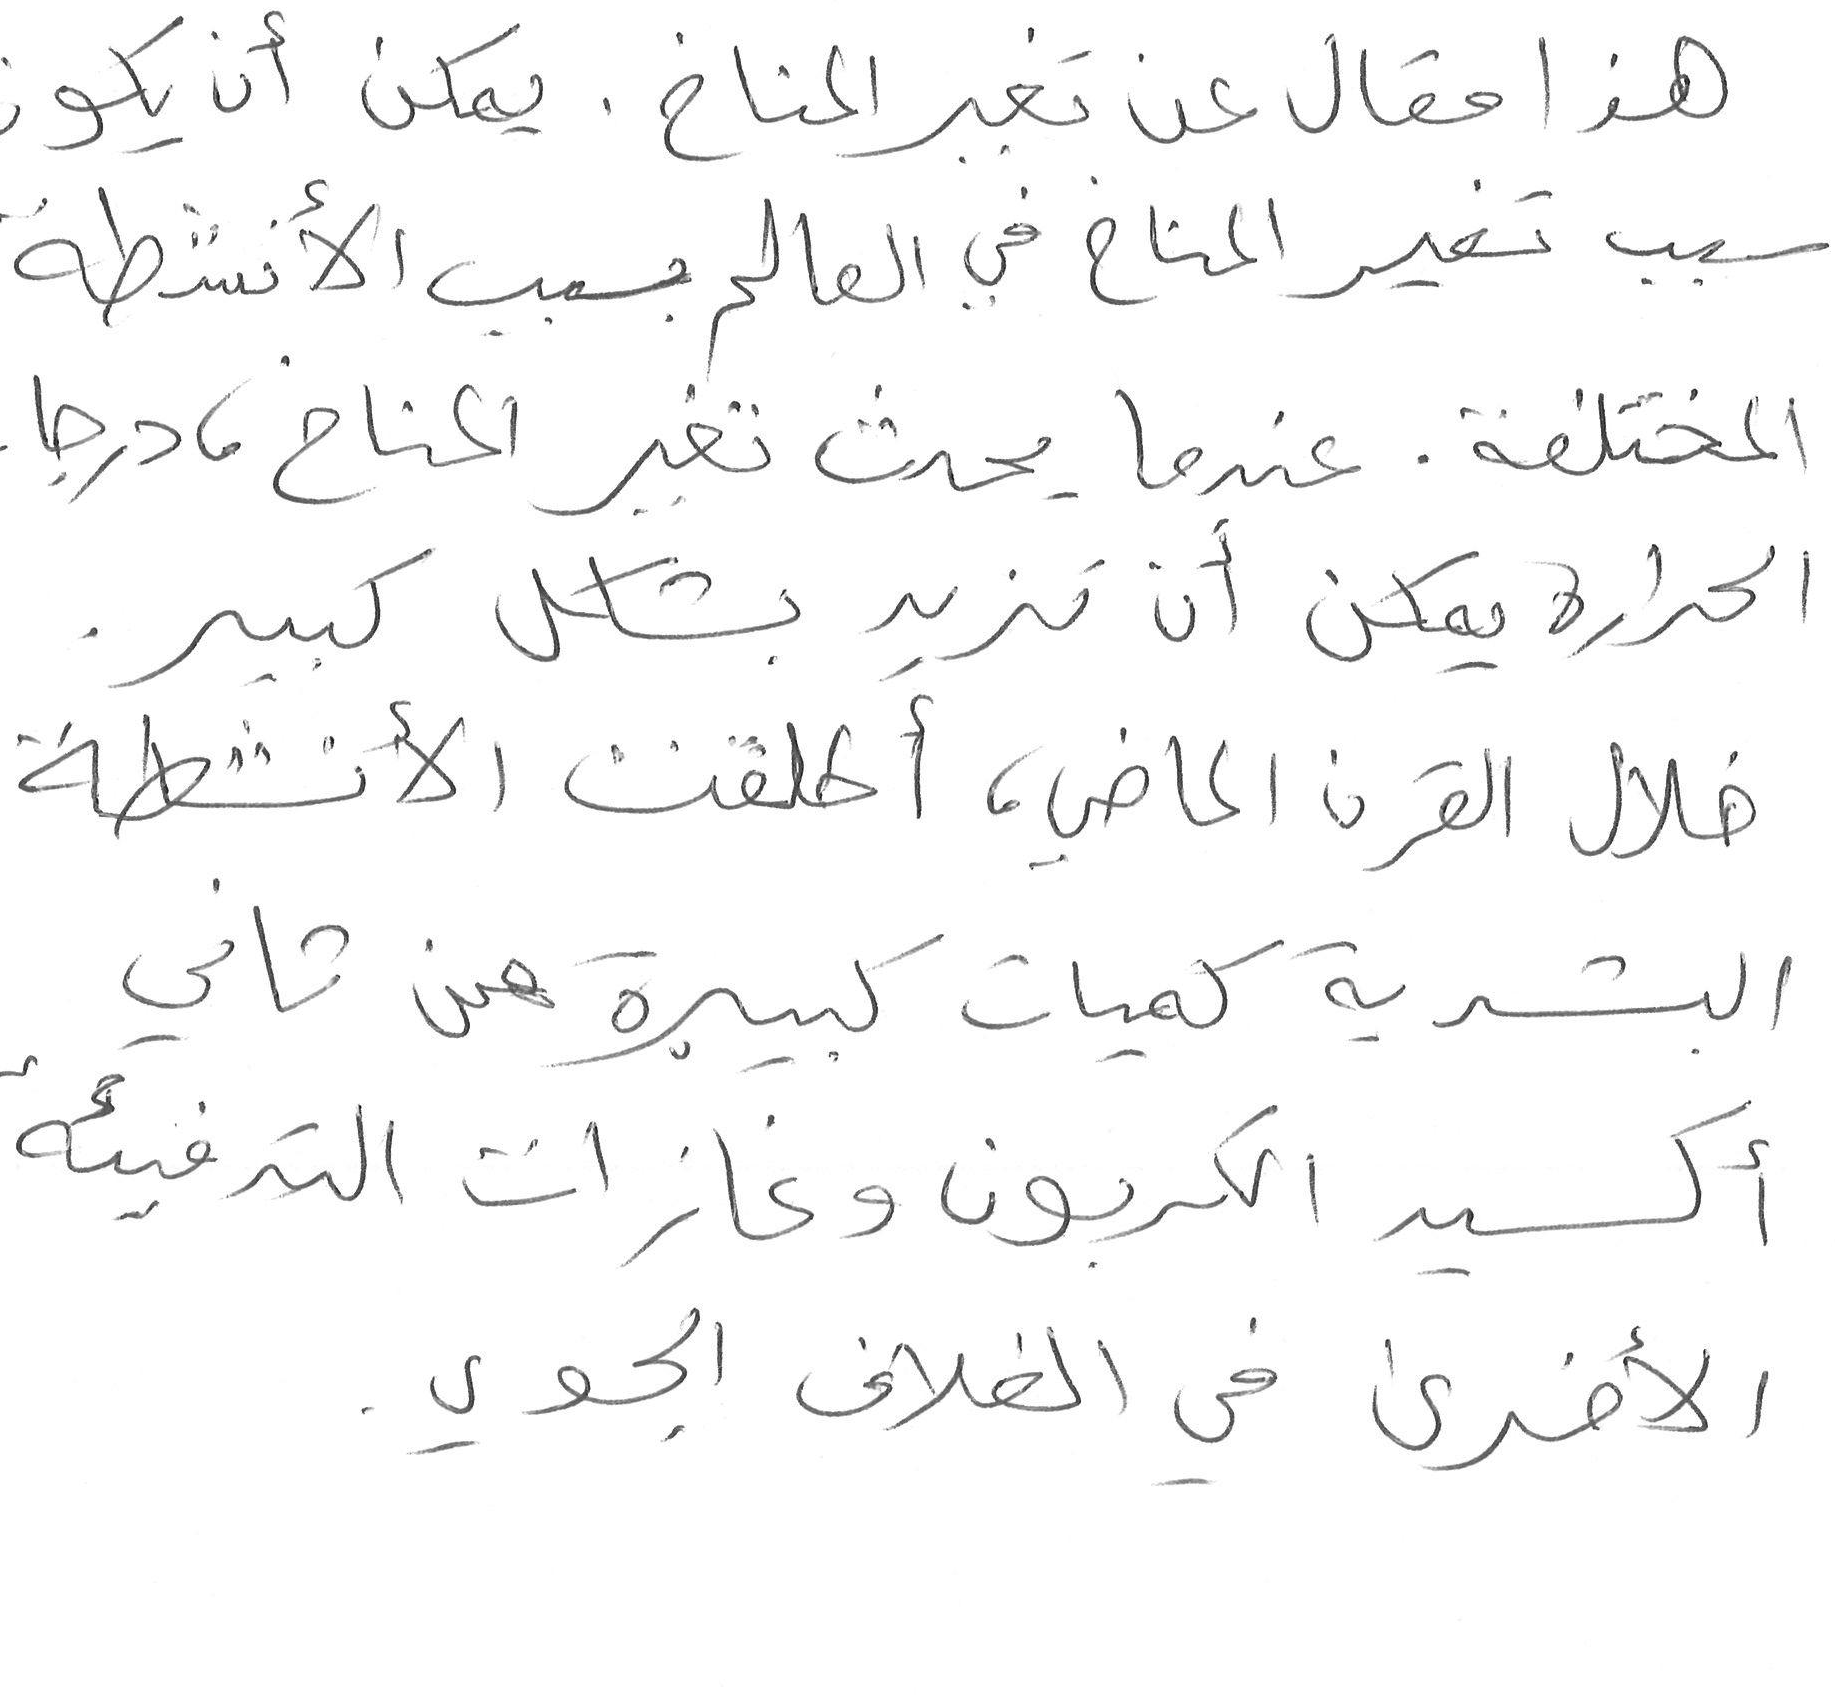 هذا مقال عن تغير المناخ. يمكن أن يكون
سبب تغير المناخ في العالم بسبب الأنشطة
المختلفة. عندما يحدث تغير المناخ، درجات
الحرارة يمكن أن تزيد بشكل كبير.
خلال القرن الماضي، أطلقت الأنشطة
البشرية كميات كبيرة من ثاني
أكسيد الكربون وغازات التدفيئة
الأخرى في الغلاف الجوي.